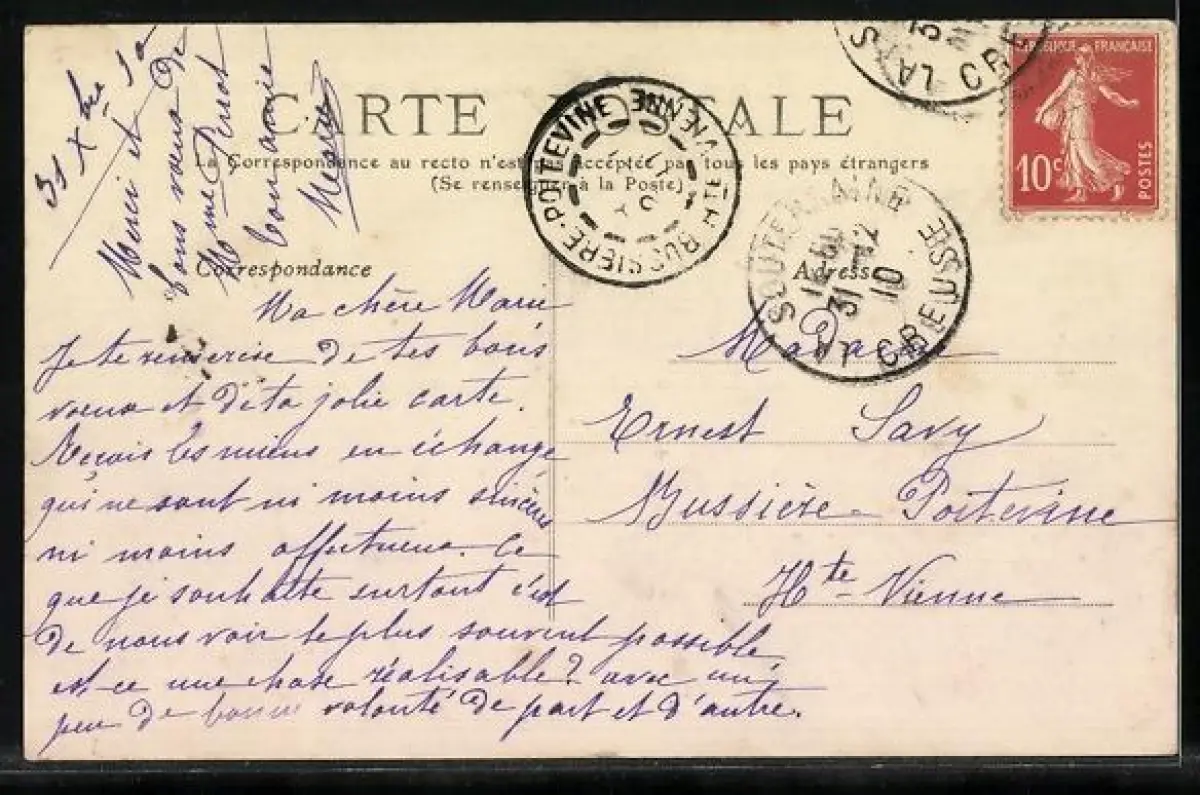 31 Xbre 10
Merci et
bons vœux de
Mme Perrot
Ton amie
CARTE POSTALE
La Correspondance au recto n'est pas acceptée par tous les pays étrangers
(Se renseigner à la Poste)
Correspondance
Adresse
REPUBLIQUE FRANÇAISE
10c POSTES
BUSSIERE-POITEVINE
HTE VIENNE
LA SOUTERRAINE
31 12
10
CREUSE
Ma chère Marie
Je te remercie de tes bons
vœux et de ta jolie carte.
Reçois les miens en échange
qui ne sont ni moins sincères
ni moins affectueux. Ce
que je souhaite surtout c'est
de nous voir le plus souvent possible,
est-ce une chose réalisable? avec un
peu de bonne volonté de part et d'autre.
Madame
Ernest Savy
Bussière-Poitevine
Hte-Vienne